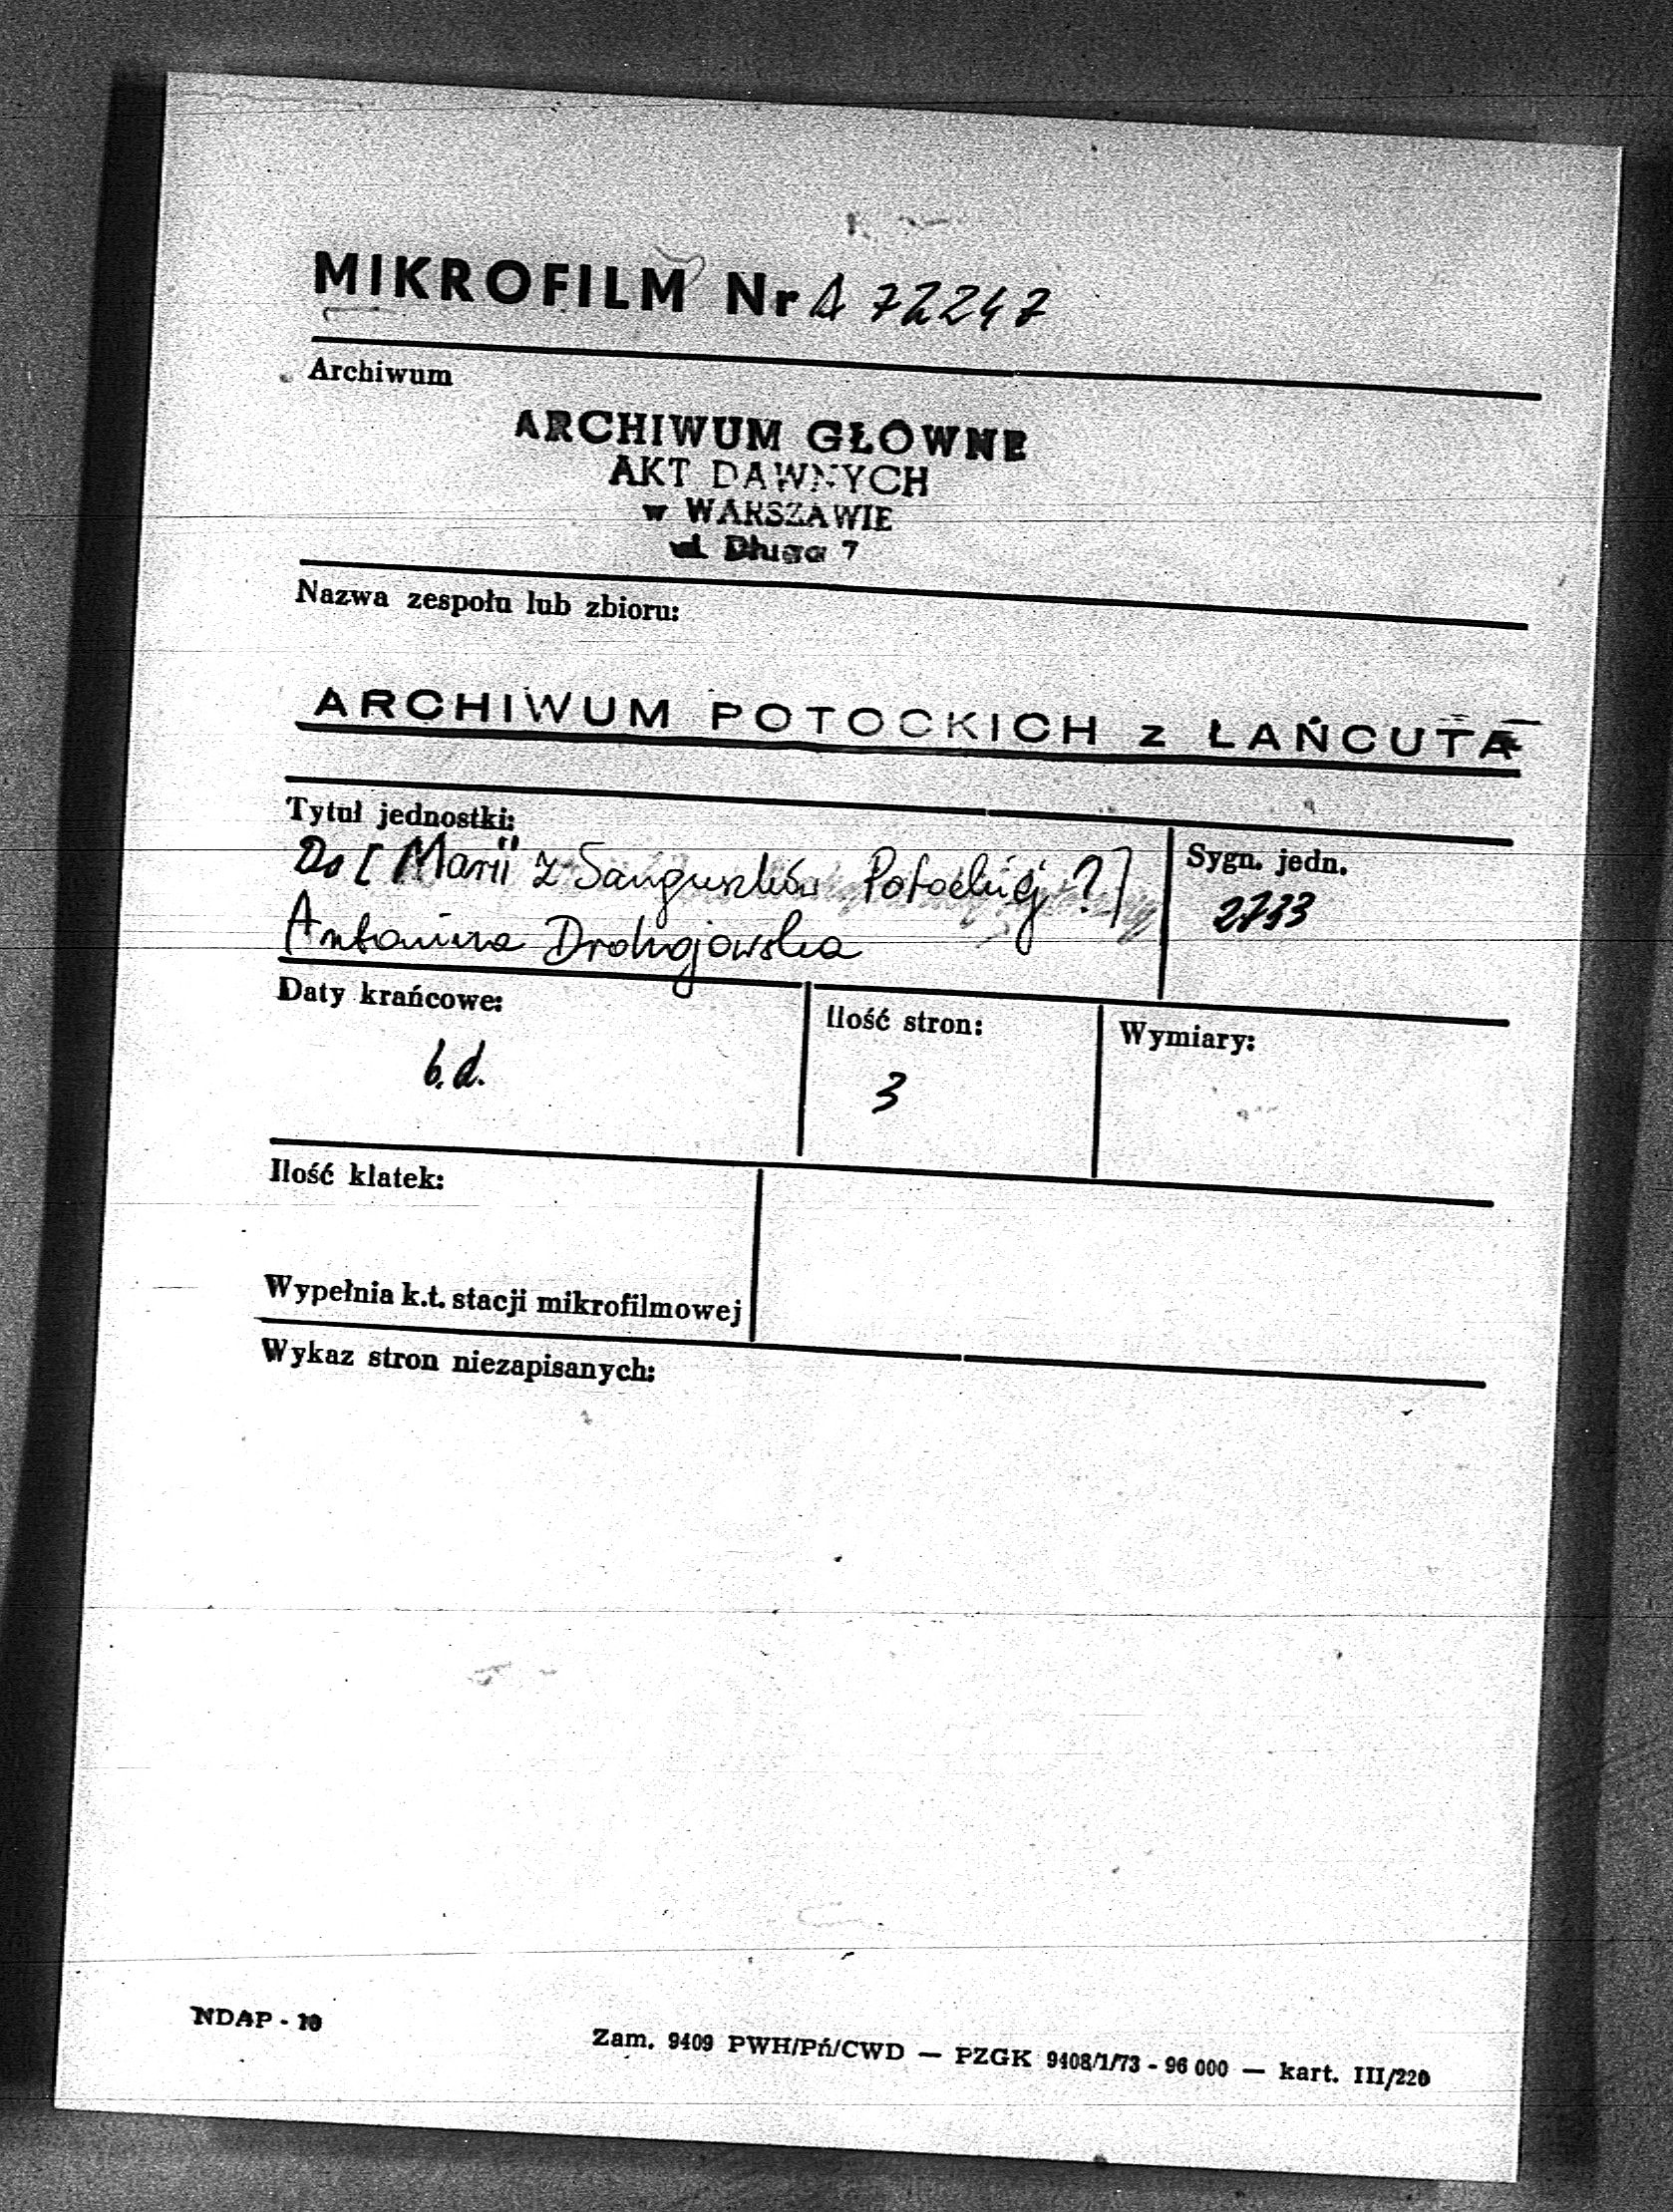 MIKROFILM Nr A 72247
Archiwum
ARCHIWUM GŁÓWNE
AKT DAWNYCH
w WARSZAWIE
ul. Długa 7
Nazwa zespołu lub zbioru:
ARCHIWUM POTOCKICH z ŁAŃCUTA
Tytuł jednostki:
Do [Marii z Sanguszków Potockiej ?]
Antonina Drohojowska
Sygn. jedn.
2733
Daty krańcowe:
b.d.
Ilość stron:
3
Wymiary:
Ilość klatek:
Wypełnia k.t. stacji mikrofilmowej
Wykaz stron niezapisanych:
NDAP - 10
Zam. 9409 PWH/Pń/CWD — PZGK 9408/1/73 - 96 000 — kart. III/220